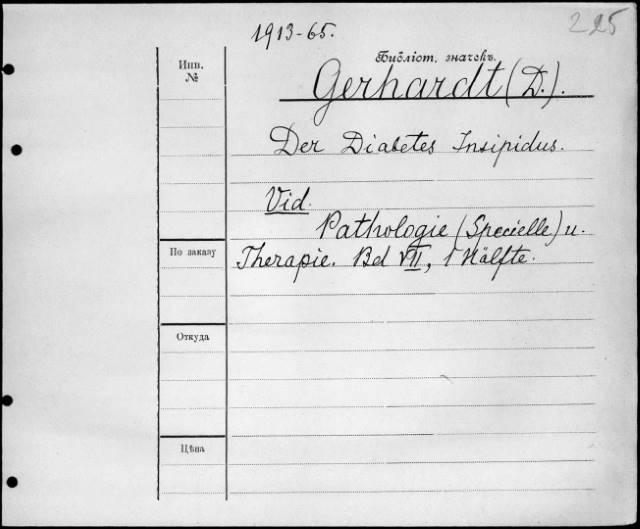 1913-65.
225
Библіот. значекъ.
Инв.
№
Gerhardt (D.).
Der Diabetes Insipidus.
Vid.
Pathologie (Specielle) u.
По заказу
Therapie. Bd VII, 1 Hälfte.
Откуда
Цѣна